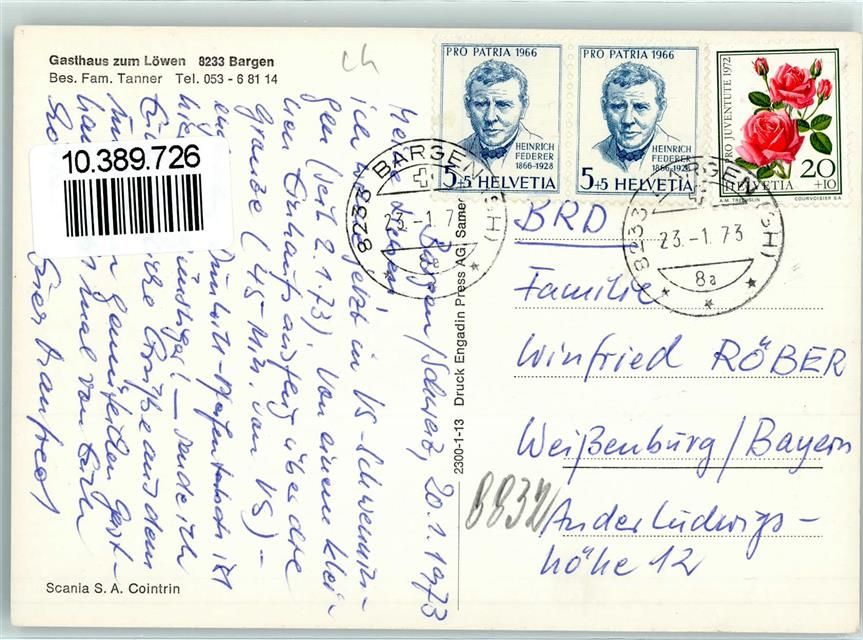 Gasthaus zum Löwen 8233 Bargen
Bes. Fam. Tanner Tel. 053 - 6 81 14
ch
PRO PATRIA 1966
HEINRICH
FEDERER
1866-1928
5+5 HELVETIA
PRO PATRIA 1966
HEINRICH
FEDERER
1866-1928
5+5 HELVETIA
PRO JUVENTUTE 1972
20
+10
HELVETIA
COURVOISIER S.A.
8233 BARGEN (SH)
23.-1.73
8a
8233 BARGEN (SH)
23.-1.73
8a
10.389.726
Bargen/Schweiz, 20.1.1973
Lieben!
ich jetzt in VS-Schwennin-
gen (seit 2.1.73). Von einem klei-
nen Einkaufsausflug über die
Grenze (45 Min. von VS) -
ist
günstiger! - sende ich
Grüße aus dem
gemütlichen Gast-
mal von Euch
Euer Manfred
2300-1-13 Druck Engadin Press AG, Samedan
BRD
Familie
Winfried RÖBER
Weißenburg/Bayern
8832
An der Ludwigs-
höhe 12
Scania S. A. Cointrin